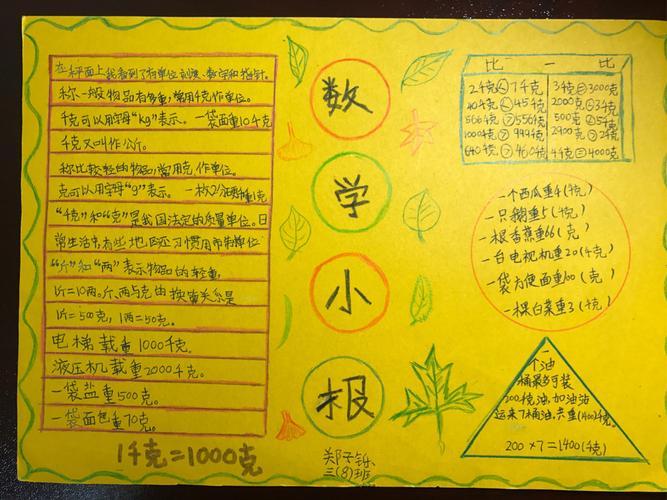 在秤面上我看到了有单位、刻度、数字和指针。
称一般物品有多重,常用千克作单位。
千克可以用字母"kg"表示。一袋面重10千克
千克又叫作公斤。
称比较轻的物品,常用克作单位。
克可以用字母"g"表示。一枚2分硬币重1克
"千克"和"克"是我国法定的质量单位。日
常生活中有些地区还习惯用市制单位
"斤"和"两"表示物品的轻重。
1斤=10两。斤、两与克的换算关系是
1斤=500克,1两=50克。
电梯载重1000千克。
液压机载重2000千克。
一袋盐重500克。
一袋面包重70克。
1千克=1000克
数
学
小
报
郑子铄
三(8)班
比一比
2千克<7千克 3千克=3000克
40千克<45千克 2000克<3千克
566千克>556千克 500克<5千克
1000千克>999千克 2900克>2千克
640千克>460千克 4千克=4000克
一个西瓜重4(千克)
一只鹅重5(千克)
一根香蕉重66(克)
一台电视机重20(千克)
一袋方便面重100(克)
一棵白菜重3(千克)
一
个油
桶最多可装
200千克油,加油站
运来了7桶油,共重(1400)千克。
200×7=1400(千克)